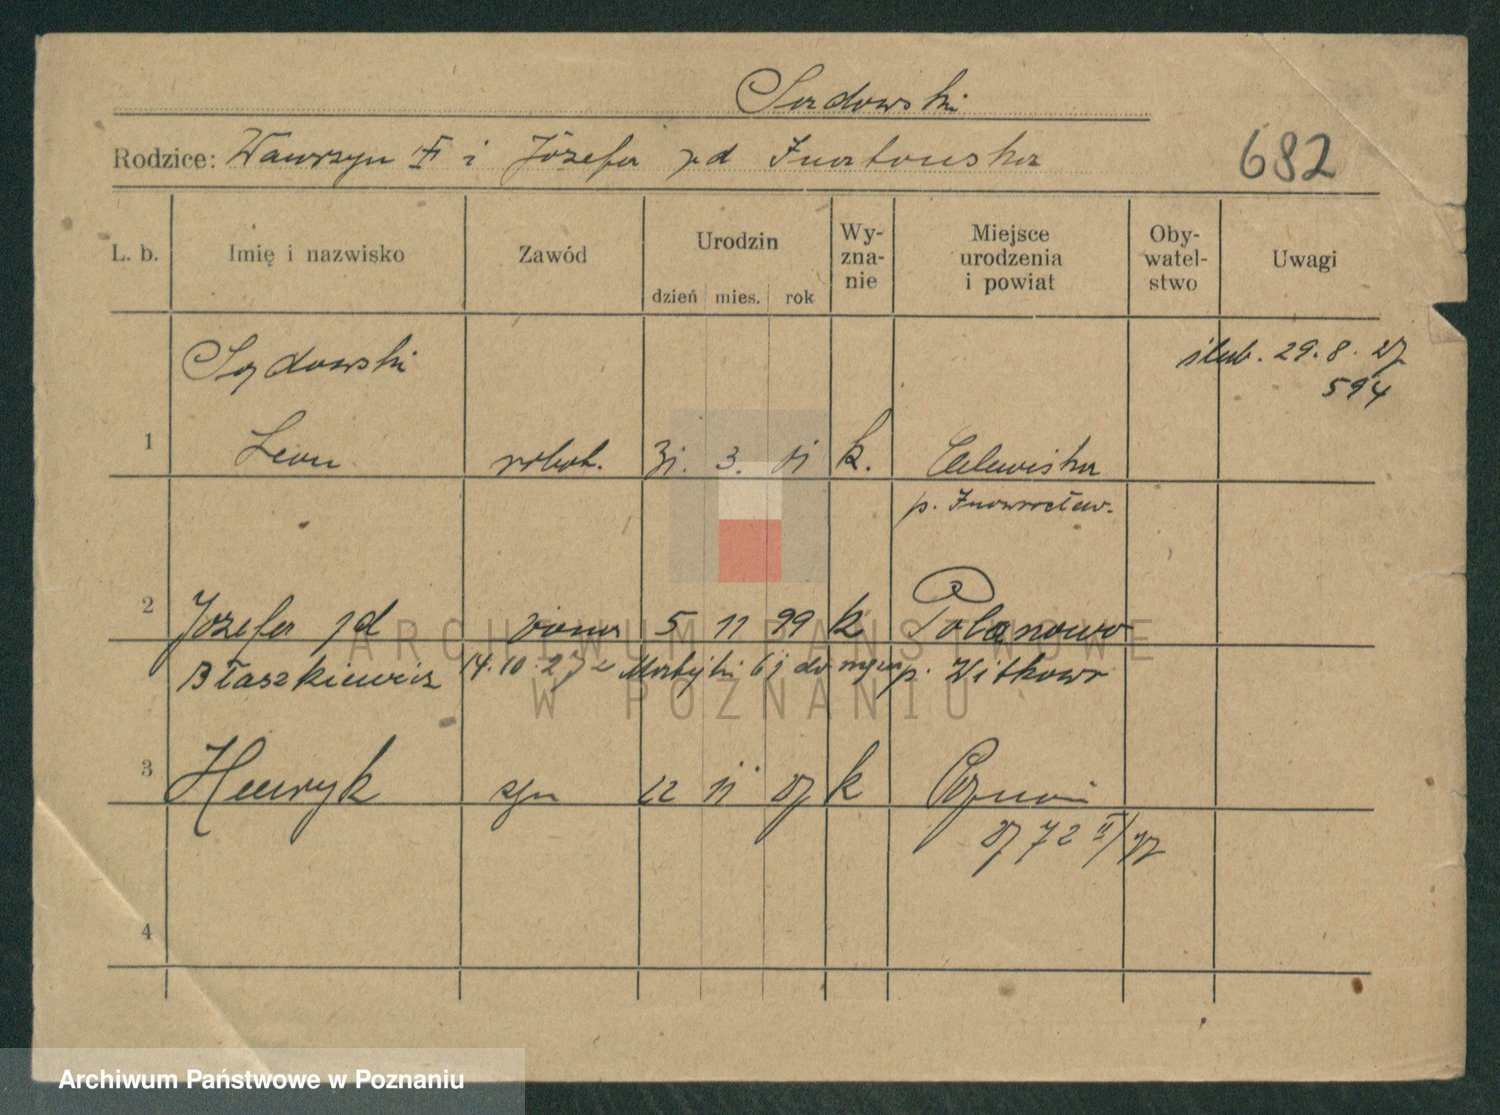 Sądowski
Rodzice: Wawrzyn i Józefa zd
682
L. b. Imię i nazwisko Zawód Urodzin dzień mies. rok Wy-zna-nie Miejsce urodzenia i powiat Oby-watel-stwo Uwagi
Sądowski
ślub. 29. 8. 27
594
1 Leon robot. 31. 3. 01 k.
p. Inowrocław.
2 Józefa zd żona 5 11 99 k Polanowo
Błaszkiewicz 14. 10. 27 p. Witkowo
3 Henryk syn 12 11 27 k Poznań
4
ARCHIWUM PAŃSTWOWE
W POZNANIU
Archiwum Państwowe w Poznaniu